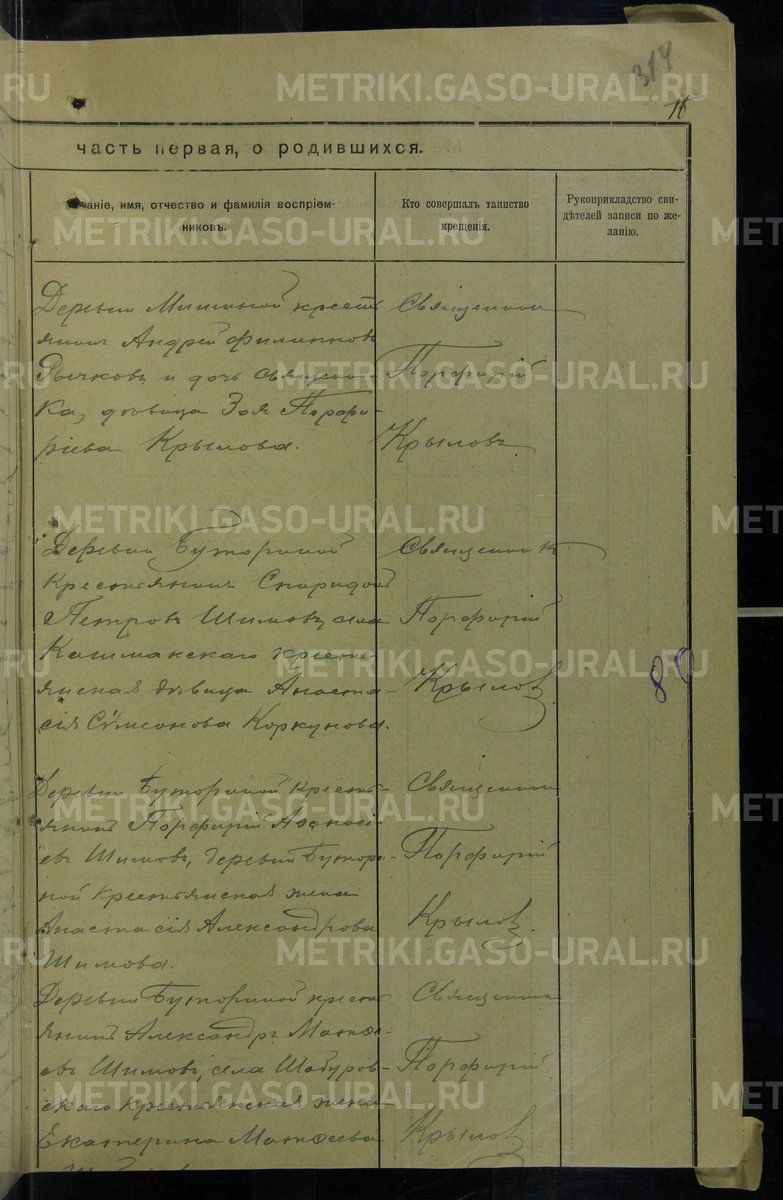 314
METRIKI.GASO-URAL.RU
16
часть первая, о родившихся.
Званіе, имя, отчество и фамилія воспріемниковъ.
Кто совершалъ таинство крещенія.
Рукоприкладство свидѣтелей записи по желанію.
Деревни Мишиной крестьянинъ
Андрей Филипповъ
Рычковъ и дочь священника,
дѣвица Зоя Порфирiева
Крылова.
Священникъ
Порфирій
Крыловъ
Деревни Буториной
крестьянинъ Спиридонъ
Петровъ Шимовъ, села
Кашмакскаго крестьянская
дѣвица Анастасія
Сѵмеонова Коркунова.
Священникъ
Порфирій
Крыловъ
80
Деревни Буториной крестьянинъ
Порфирій Аѳанасіевъ
Шимовъ, деревни Буториной
крестьянская жена
Анастасія Александрова
Шимова.
Священникъ
Порфирій
Крыловъ.
Деревни Буториной крестьянинъ
Александръ Матѳеевъ
Шимовъ, села Шабуровскаго
крестьянская жена
Екатерина Матѳеева
Священникъ
Порфирій
Крыловъ